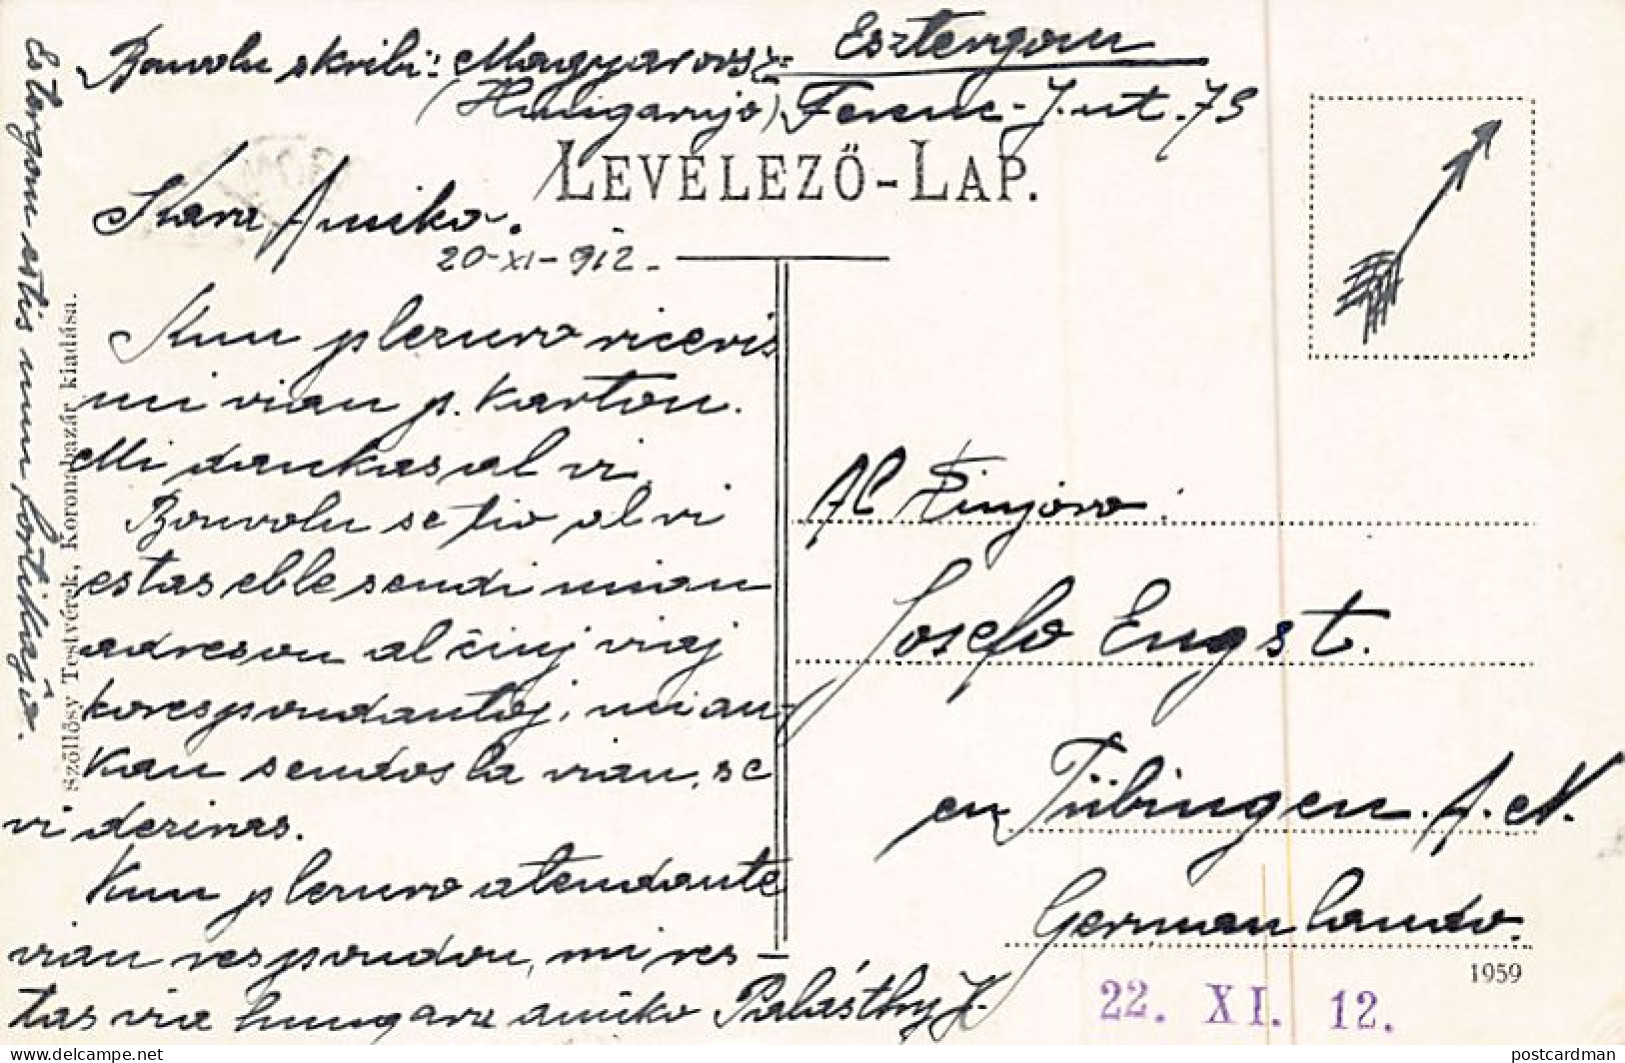 Bonvolu skribi: Magyarorsz= Esztergom
(Hungarujo) Ferenc-J. ut. 75
LEVELEZŐ-LAP.
Kara Amiko.
20-XI-912.
Kun plezuro ricevis
mi vian p. karton.
Mi dankas al vi.
Bonvolu se tio al vi
estas eble sendi mian
adreson al ĉiuj viaj
korespondantoj, mian
kan sendos la vian, se
vi deziras.
Kun plezuro atendante
vian respondon, mi res-
tas via hungara amiko Palásthy J.
Estergom estis mum fortikaĵo.
Szőllősy Testvérek, Koronabazár kiadása.
Al Sinjoro:
Josefo Engst.
en Tübingen. A. N.
Germanlando.
1959
22. XI. 12.
postcardman